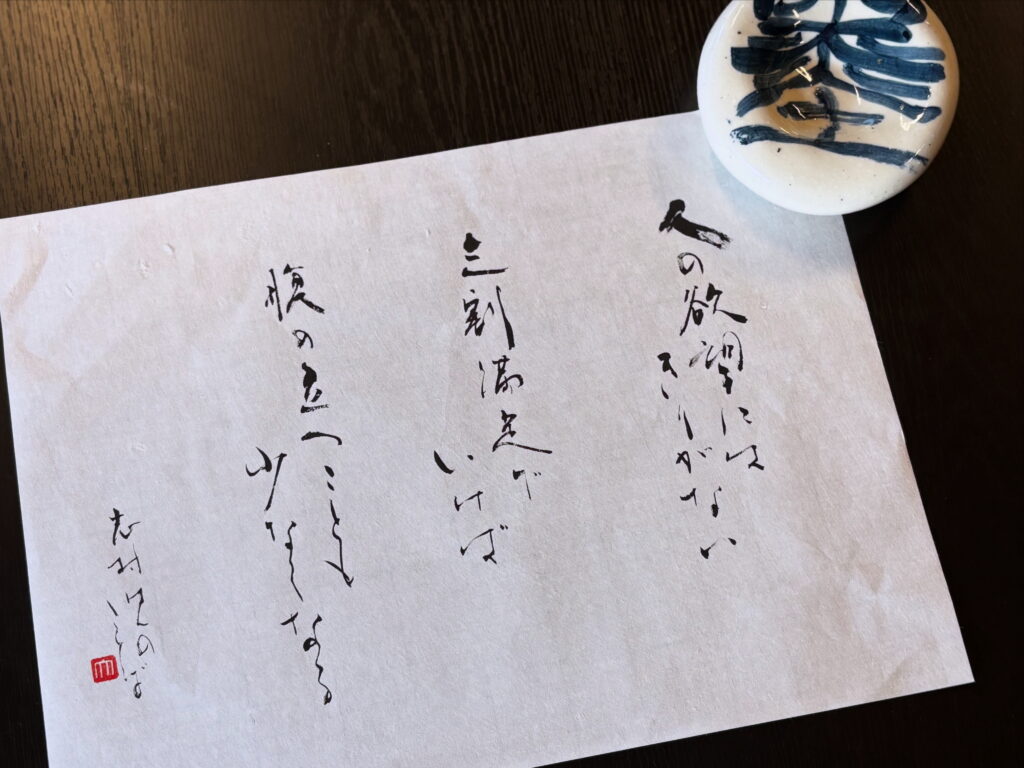 人の欲望には
きりがない
三割満足で
いけば
腹の立つことも
少なくなる
志村
の
ことば